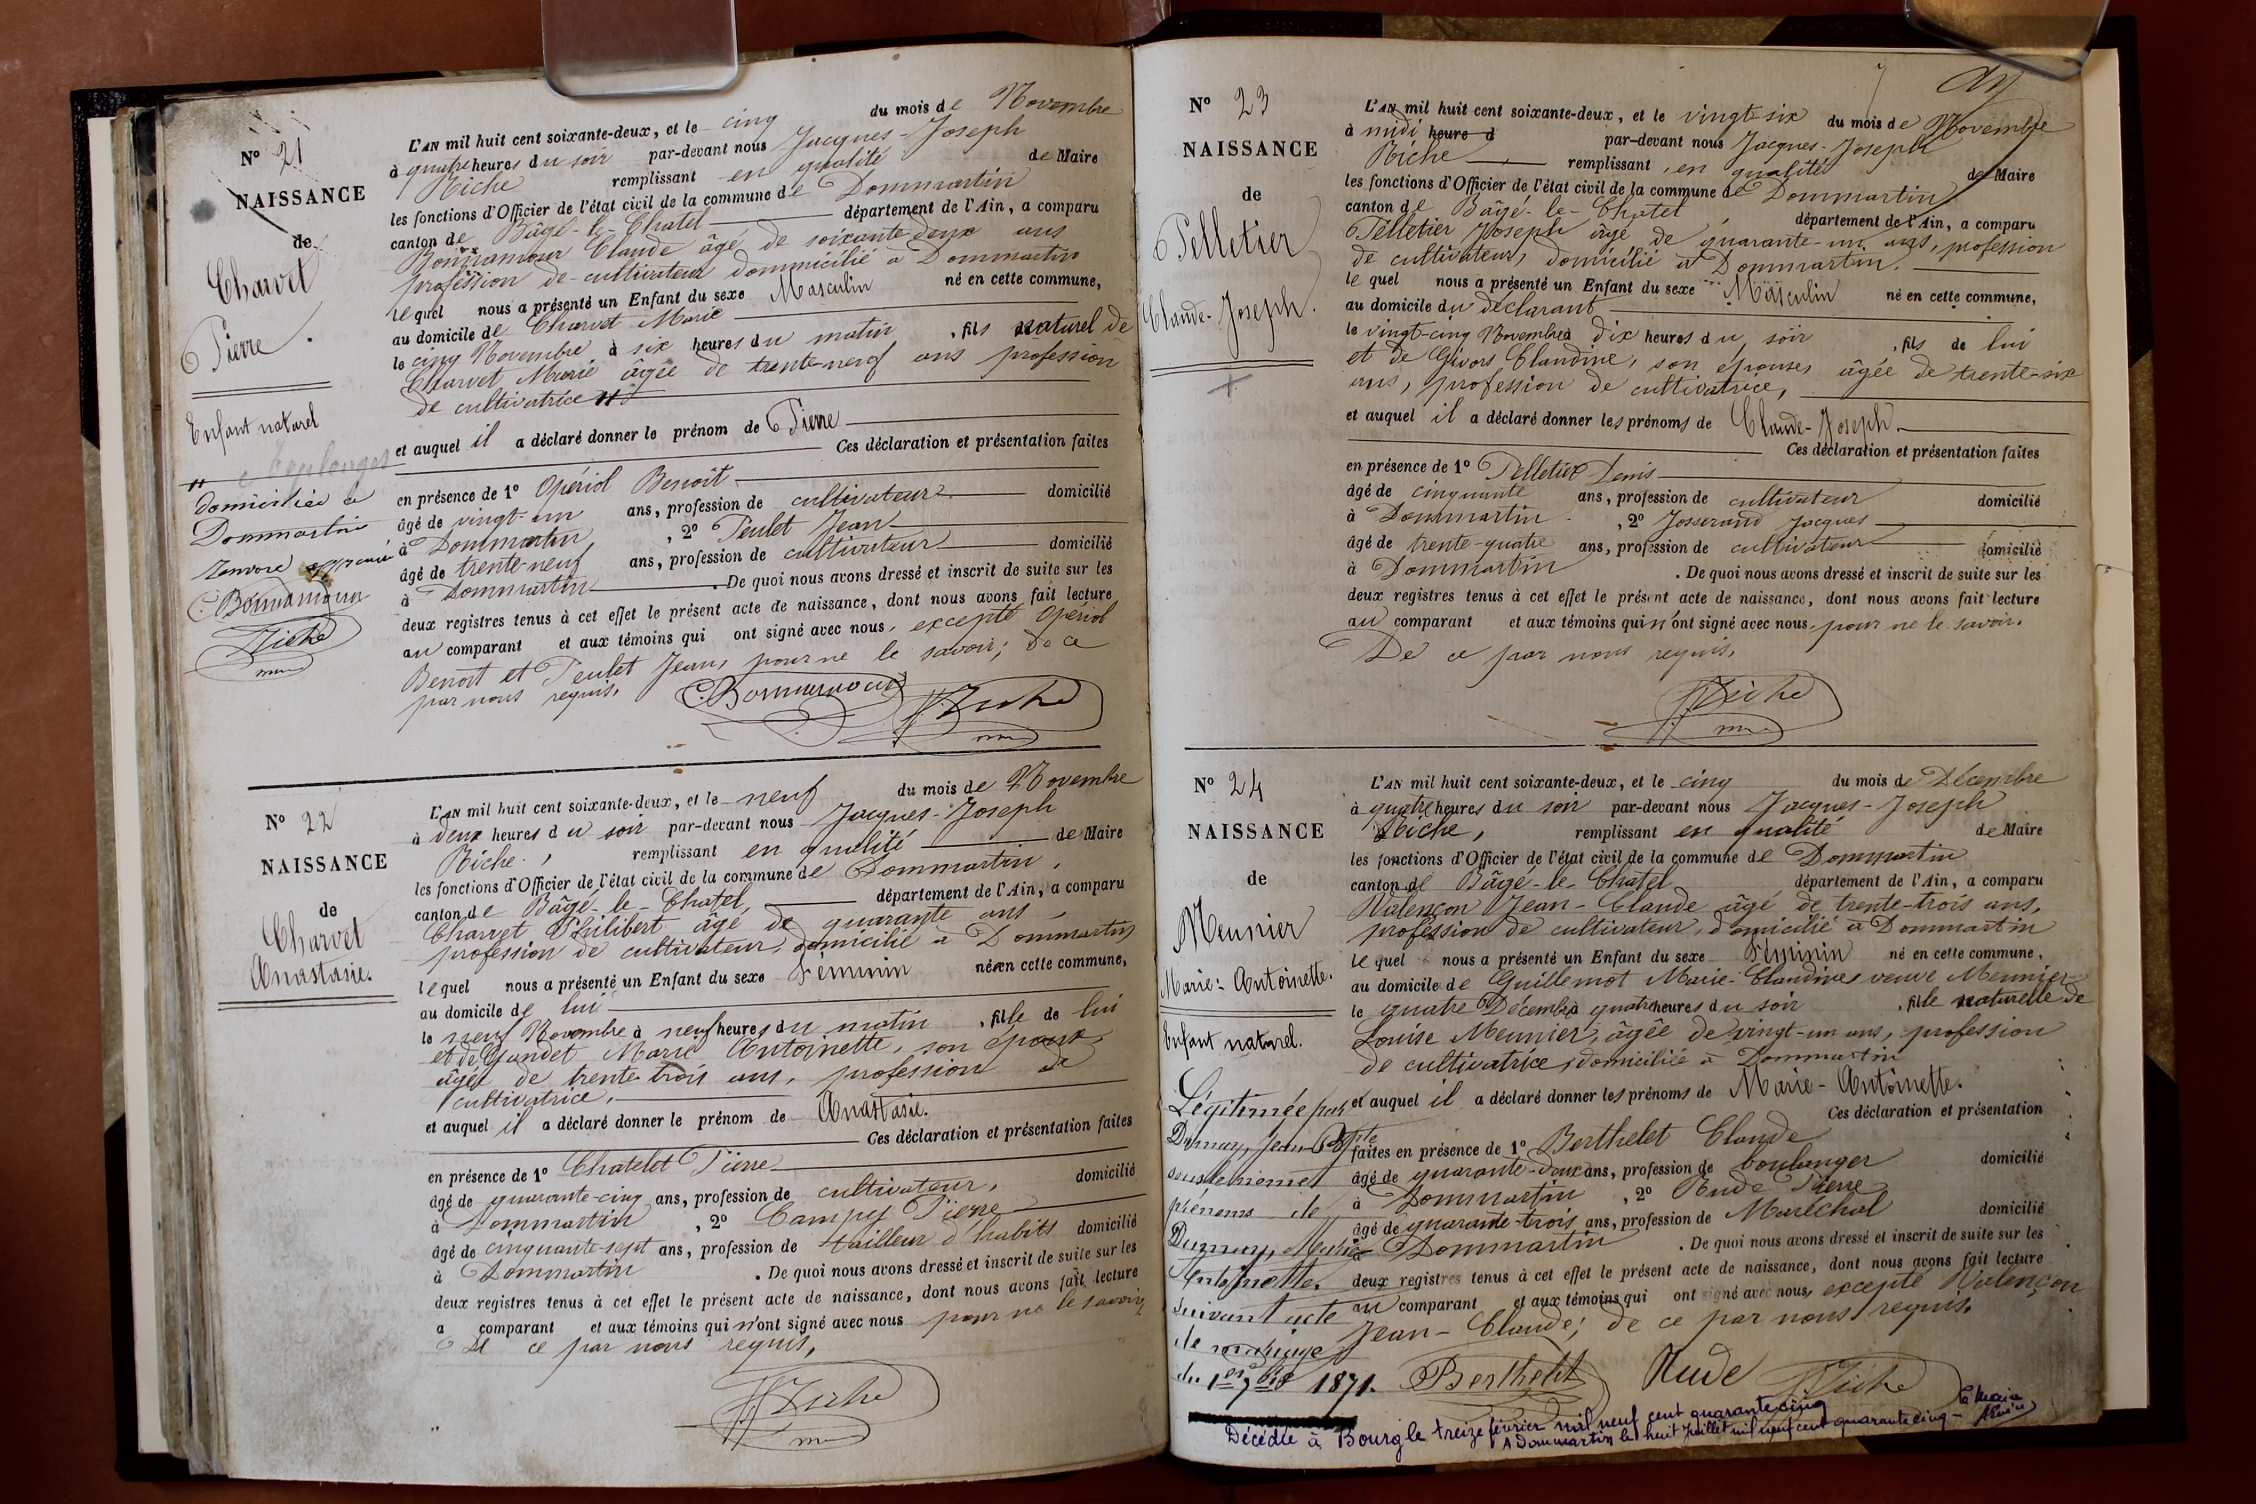 N° 21
NAISSANCE
de
Charvet
Pierre.
Enfant naturel
"
domiciliée à
Dommartin
renvoi approuvé
C. Bonnamour
Riche
L'AN mil huit cent soixante-deux, et le cinq du mois de Novembre
à quatre heures du soir par-devant nous Jacques-Joseph
Riche remplissant en qualité de Maire
les fonctions d'Officier de l'état civil de la commune de Dommartin
canton de Bâgé-le-Chatel département de l'Ain, a comparu
Bonnamour Claude âgé de soixante-deux ans
profession de cultivateur dommicilié à Dommartin
lequel nous a présenté un Enfant du sexe Masculin né en cette commune,
au domicile de Charvet Marie
le cinq Novembre à six heures du matin, fils naturel de
Charvet Marie âgée de trente-neuf ans profession
de cultivatrice "
et auquel il a déclaré donner le prénom de Pierre
Ces déclaration et présentation faites
en présence de 1° Opériol Benoît
âgé de vingt-un ans, profession de cultivateur domicilié
à Dommartin, 2° Teulet Jean
âgé de trente-neuf ans, profession de cultivateur domicilié
à Dommartin. De quoi nous avons dressé et inscrit de suite sur les
deux registres tenus à cet effet le présent acte de naissance, dont nous avons fait lecture
au comparant et aux témoins qui ont signé avec nous, excepté Opériol
Benoît et Teulet Jean, pour ne le savoir; de ce
par nous requis.
C. Bonnamour Riche
N° 22
NAISSANCE
de
Charvet
Anastasie.
L'AN mil huit cent soixante-deux, et le neuf du mois de Novembre
à deux heures du soir par-devant nous Jacques-Joseph
Riche, remplissant en qualité de Maire
les fonctions d'Officier de l'état civil de la commune de Dommartin,
canton de Bâgé-le-Chatel, département de l'Ain, a comparu
Charvet Philibert âgé de quarante ans
profession de cultivateur, domicilié à Dommartin
lequel nous a présenté un Enfant du sexe Féminin née en cette commune,
au domicile de lui
le neuf Novembre à neuf heures du matin, fille de lui
et de Gandet Marie Antoinette, son épouse,
âgée de trente-trois ans, profession de
cultivatrice,
et auquel il a déclaré donner le prénom de Anastasie.
Ces déclaration et présentation faites
en présence de 1° Chatelet Pierre
âgé de quarante-cinq ans, profession de cultivateur, domicilié
à Dommartin, 2° Campy Pierre
âgé de cinquante-sept ans, profession de tailleur d'habits domicilié
à Dommartin. De quoi nous avons dressé et inscrit de suite sur les
deux registres tenus à cet effet le présent acte de naissance, dont nous avons fait lecture
a comparant et aux témoins qui n'ont signé avec nous pour ne le savoir,
De ce par nous requis,
Riche
N° 23
NAISSANCE
de
Pelletier
Claude-Joseph.
L'AN mil huit cent soixante-deux, et le vingt-six du mois de Novembre
à midi heure d par-devant nous Jacques-Joseph
Riche, remplissant en qualité de Maire
les fonctions d'Officier de l'état civil de la commune de Dommartin
canton de Bâgé-le-Chatel, département de l'Ain, a comparu
Pelletier Joseph âgé de quarante-un ans, profession
de cultivateur, domicilié à Dommartin.
lequel nous a présenté un Enfant du sexe Masculin né en cette commune,
au domicile du déclarant
le vingt-cinq Novembre à dix heures du soir, fils de lui
et de Givors Claudine, son épouse, âgée de trente-six
ans, profession de cultivatrice,
et auquel il a déclaré donner les prénoms de Claude-Joseph.
Ces déclaration et présentation faites
en présence de 1° Pelletier Denis
âgé de cinquante ans, profession de cultivateur domicilié
à Dommartin, 2° Josserand Jacques
âgé de trente-quatre ans, profession de cultivateur domicilié
à Dommartin. De quoi nous avons dressé et inscrit de suite sur les
deux registres tenus à cet effet le présent acte de naissance, dont nous avons fait lecture
au comparant et aux témoins qui n'ont signé avec nous, pour ne le savoir.
De ce par nous requis,
Riche
N° 24
NAISSANCE
de
Meunier
Marie-Antoinette.
Enfant naturel.
Légitimée par
Dumay, Jean-Bpte
sous les nom et
prénoms de
Dumay, Marie
Antoinette.
suivant acte
de mariage
du 1er 7bre 1871.
L'AN mil huit cent soixante-deux, et le cinq du mois de Décembre
à quatre heures du soir par-devant nous Jacques-Joseph
Riche, remplissant en qualité de Maire
les fonctions d'Officier de l'état civil de la commune de Dommartin
canton de Bâgé-le-Chatel département de l'Ain, a comparu
Valençon Jean-Claude âgé de trente-trois ans,
profession de cultivateur, domicilié à Dommartin
lequel nous a présenté un Enfant du sexe Féminin né en cette commune,
au domicile de Guillemot Marie-Claudine, veuve Meunier
le quatre Décembre à quatre heures du soir, fille naturelle de
Louise Meunier, âgée de vingt-un ans, profession
de cultivatrice, domiciliée à Dommartin
et auquel il a déclaré donner les prénoms de Marie-Antoinette.
Ces déclaration et présentation
faites en présence de 1° Berthelet Claude
âgé de quarante-deux ans, profession de boulanger domicilié
à Dommartin, 2° Rude Pierre
âgé de quarante-trois ans, profession de Maréchal domicilié
à Dommartin. De quoi nous avons dressé et inscrit de suite sur les
deux registres tenus à cet effet le présent acte de naissance, dont nous avons fait lecture
au comparant et aux témoins qui ont signé avec nous, excepté Valençon
Jean-Claude; de ce par nous requis.
Berthelet Rude Riche
Décédée à Bourg le treize février mil neuf cent quarante cinq
A Dommartin le huit Juillet mil neuf cent quarante cinq - Le Maire